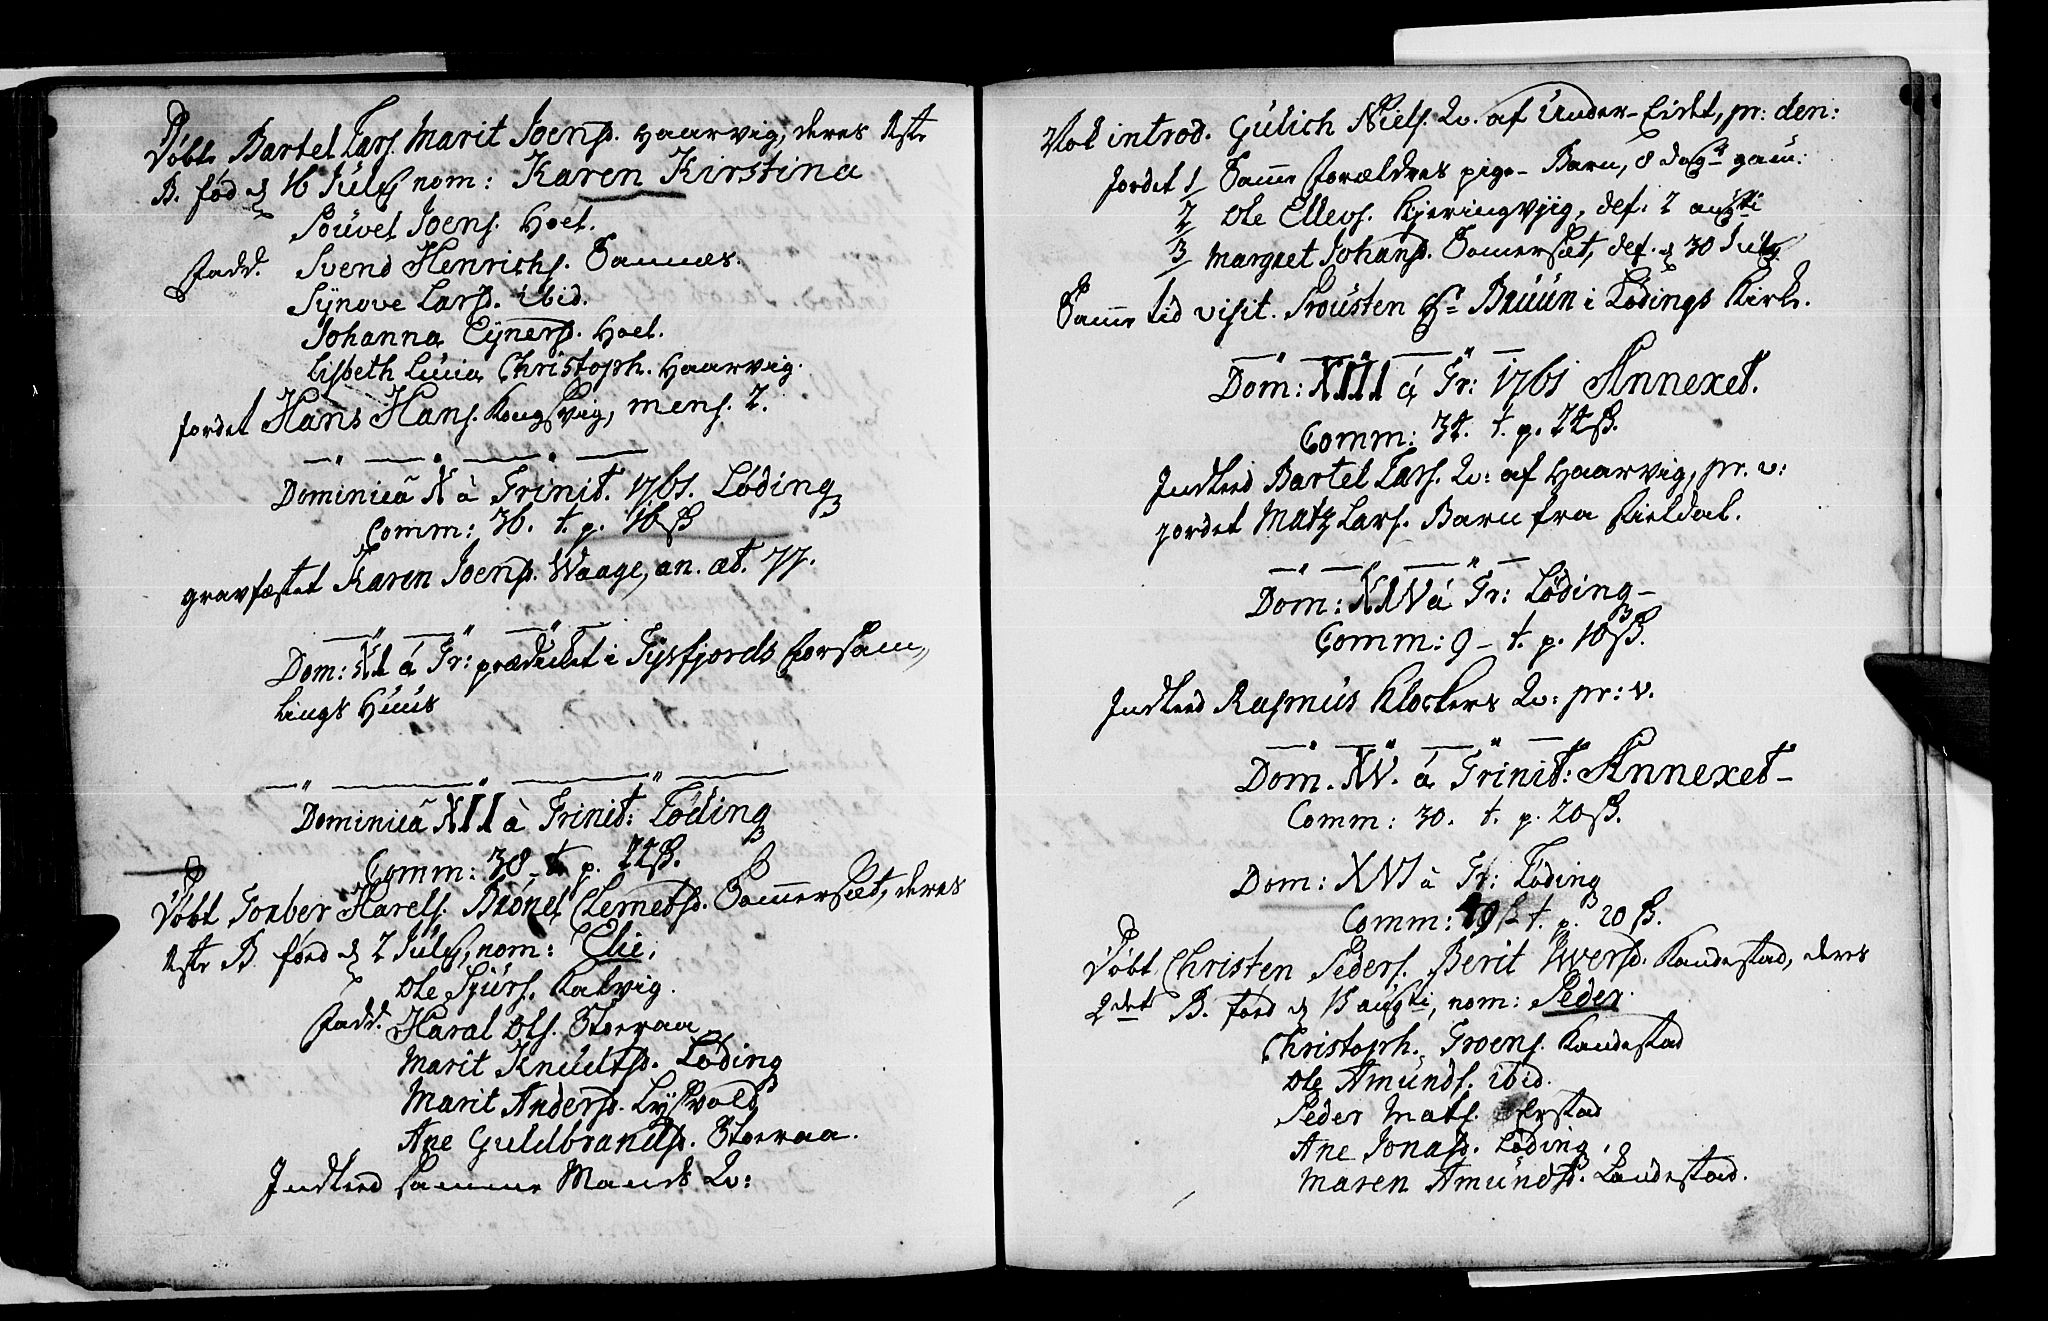 Døbt Bartel Lars. Marit Joensd. Haarvig, deres ægte
B. fød d 16 July nom: Karen Kirstina
Povel Joens. Hoel.
Fadd. Svend Henrichs. Sannæs.
Synove Larsd. ibid.
Johanna Ejnersd. Hoel.
Lisbeth Lucia Christoph. Haarvig.
jordet Hans Hans. Kongsvig, mens. 2.
Dominica X à Trinit. 1761. Løding
Comm: 36. t. p. 16 ß
gravfæstet Karen Joensd. Waage, an. æt. 77.
Dom: XI à Tr: prædicket i Tysfjords Forsam,,
lings Huus
Dominica XII à Trinit: Løding
Comm: 38 - t. p. 22 ß.
Døbt Torber Harels. Clemetsd. Sommersæt, deres
ægte B. fød d 2 July, nom: Elie.
Ole Sjurs. Kalvig.
Fadd. Haral Ols. Storraa
Marit Knudtsd. Løding
Marit Andersd. Lysvold
Ane Guldbrandsd. Storraa.
Indleed samme Mands Qv:
Blev introd. Gulich Niels. Qv. af Under-Eidet, pr: den:
jordet 1/ Samme Forældres pige-Barn, 8 dage gam:
2/ Ole Ellevs. Kjeringvjig, def: 2 augsti
3/ Margret Johansd. Somersæt, def. d 30 July
Samme tid visit. Prousten Hr Bruun i Lødings Kirke.
Dom: XIII à Tr: 1761 Annexet.
Comm: 34. t. p. 24 ß.
Indleed Bartel Lars. Qv: af Haarvig, pr. v:
jordet Matz Lars. Barn fra Kieldal.
Dom: XIV à Tr: Løding -
Comm: 9 - t. p. 18 ß.
Indleed Rasmus Klockers Qv: pr: v.
Dom. XV. à Trinit: Annexet -
Comm: 30. t. p. 20 ß.
Dom: XVI à Tr: Løding
Comm: t. p. 20 ß.
Døbt Christen Peders. Berit Iversd. Kandestad, deres
2det B. fød d 15 augsti, nom: Peder
Christoph. Troens. Kandestad
Ole Amunds. ibid.
Peder Mats. Erstad
Ane Jonasd. Løding
Maren Amundsd. Kandestad.